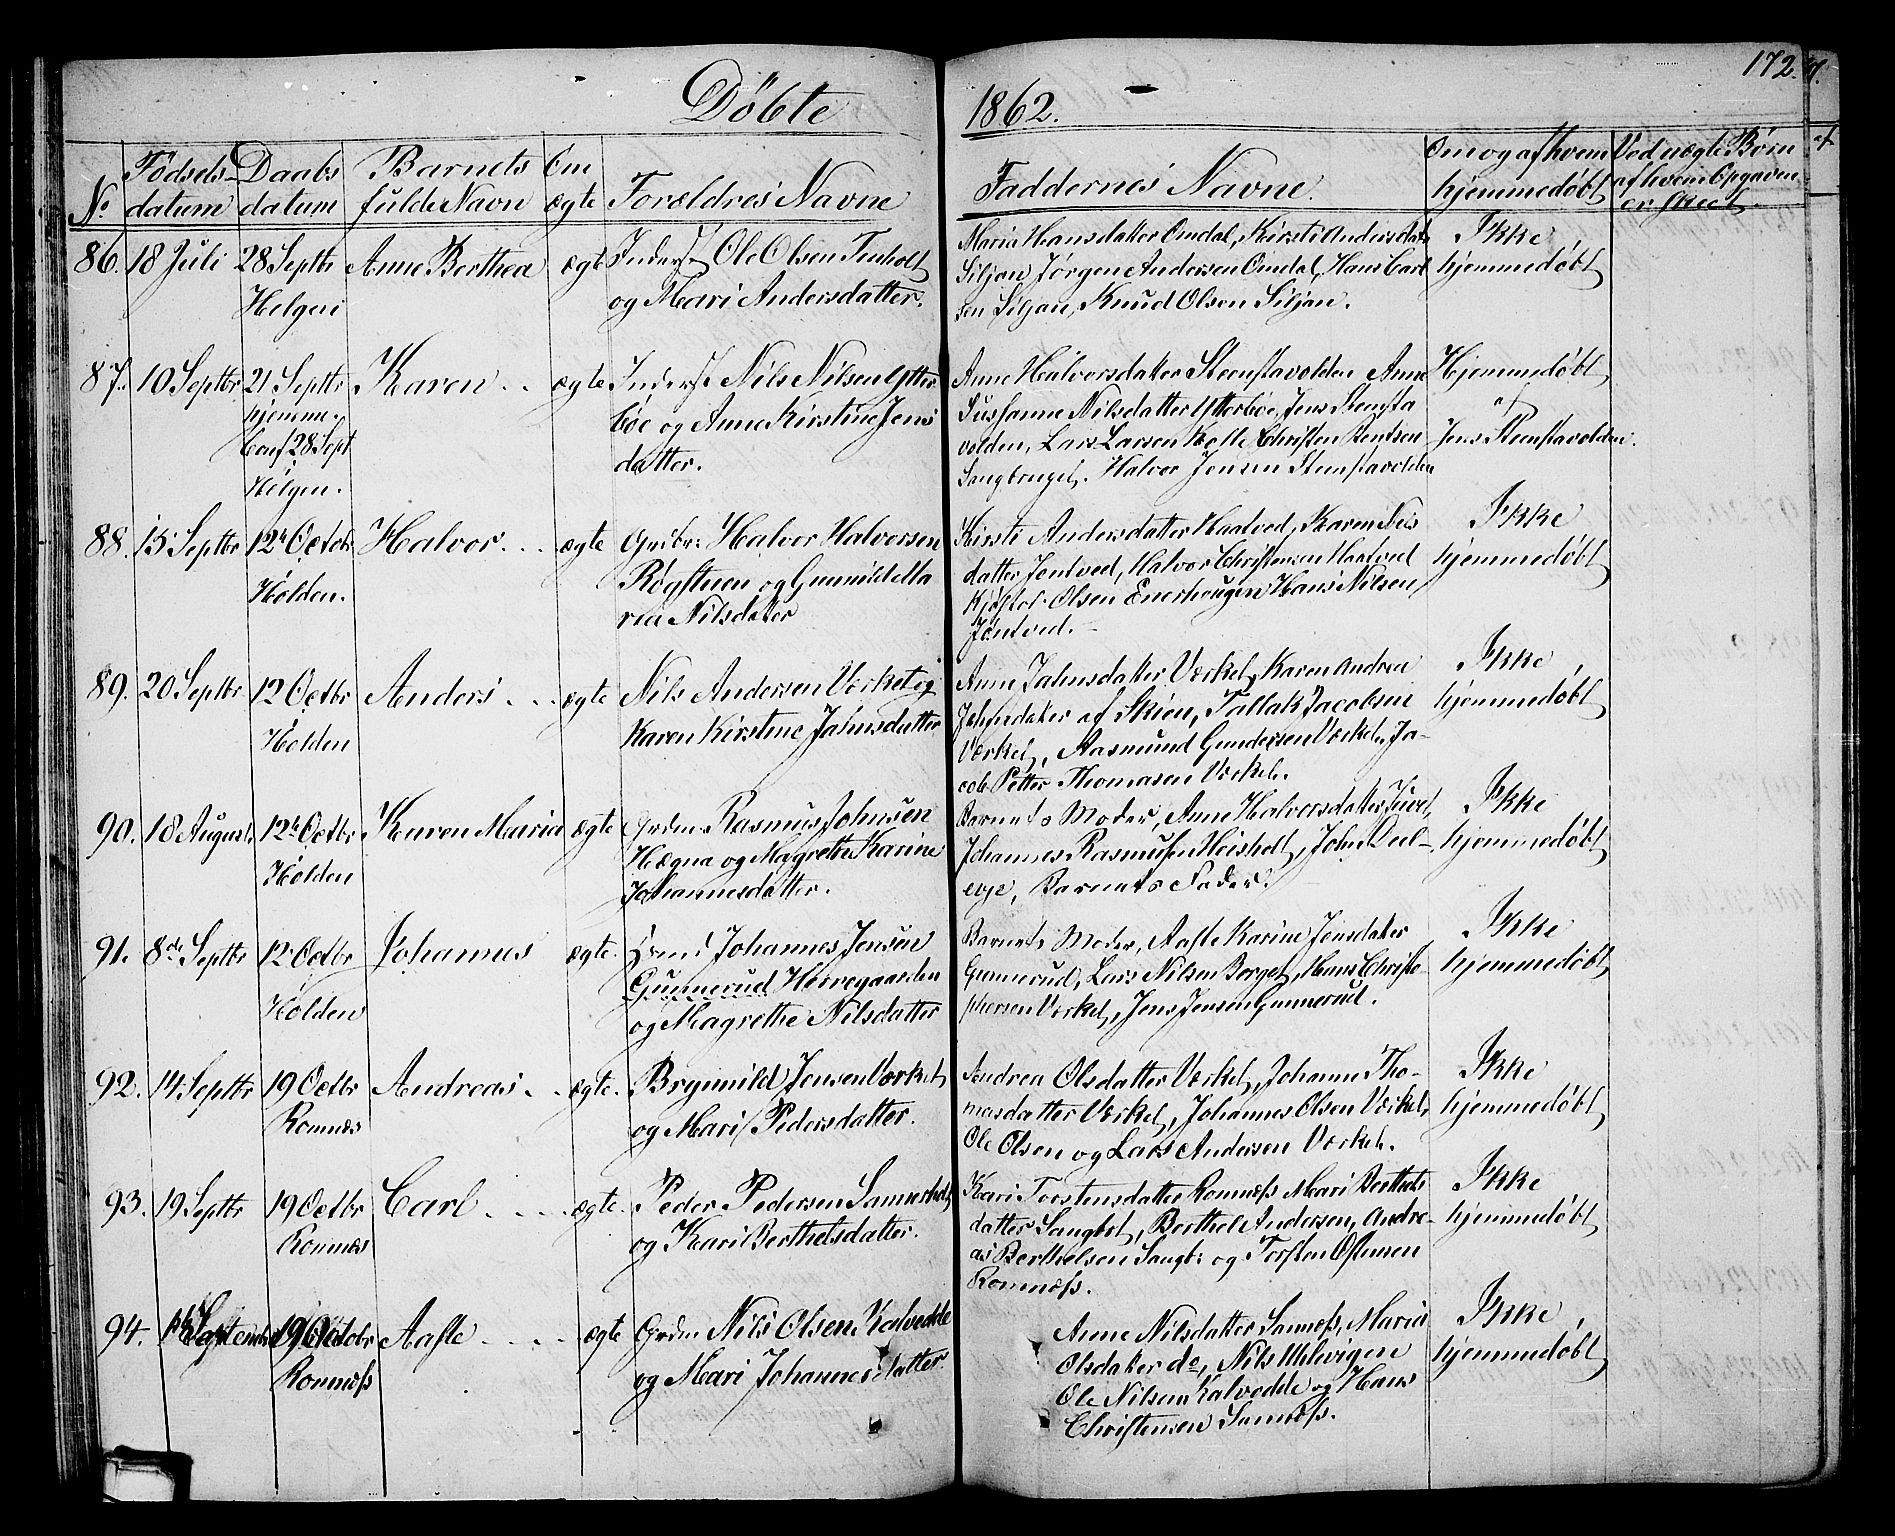 172.
Döbte 1862.
No Fødsels- datum
Daabs datum
Barnets fulde Navn
Om ægte
Forældres Navne
Faddernes Navne.
Om og af hvem hjemmedøbt
Ved uægte Børn af hvem Opgaven er skeet.
86. 18 Juli 28 Septbr Anne Berthea ægte Inderst Ole Olsen Tinholt
Helgen og Mari Andersdatter.
Maria Hansdatter Omdal, Kirsti Andersdatr
Siljan Jørgen Andersen Omdal, Hans Carl
sen Siljan, Knud Olsen Siljan.
Ikke
hjemmedøbt
87. 10 Septbr 21 Septbr Karen . . ægte Inderst Nils Nilsen Ytter
hjemme
Conf 28 Sept
Helgen.
böe og Anne Kirstine Jens
datter.
Anne Halvorsdatter Steenstavolden Anne
Susanne Nilsdatter Ytterböe, Jens Stensta
volden, Lars Larsen Christen Bentsen
Saugbruget. Halvor Jensen Stenstavolden
Hjemmedøbt
af
Jens Steenstavolden.
88. 15 Septbr 12t Octobr Halvor . . . ægte Grdbr: Halvor Halvorsen
Holden.
Røgstuen og Gunnild Ma
ria Nilsdatter
Kirsti Andersdatter Haatved, Karen Nils
datter Jontved, Halvor Christensen Haatved
Kjøstol Olsen Enerhougen Hans Nilsen
Jontved.
Ikke
hjemmedøbt
89. 20 Septbr 12 Octbr Anders . . . ægte Nils Andersen Værket og
Holden
Karen Kirstine Jahnsdatter
Anne Jahnsdatter Værket, Karen Andrea
Johnsdatter af Skien, Tallak Jacobsen
Værket, Aasmund Gundersen Værket, Ja-
cob Petter Thomasen Værket.
Ikke
hjemmedøbt
90. 18 August 12t Octbr Karen Maria ægte Grdm. Rasmus Johnsen
Holden
Hægna og Magrethe Karine
Johannesdatter.
Barnets Moder, Anne Halvorsdatter
Johannes Rasmusen Heisholt, John
Barnets Fader.
Ikke
hjemmedøbt
91. 8de Septbr 12 Octbr Johannes ægte. Johannes Jensen
Holden
Gunnerud Herregaarden
og Magrethe Nilsdatter
Barnets Moder, Aaste Karine Jensdatter
Gunnerud, Lars Nilsen Borget, Hans Christo-
phersen Værket, Jens Jensen Gunnerud.
Ikke
hjemmedøbt
92. 14 Septbr 19 Octbr Andreas . . ægte. Brynnild Jensen Værket
Romnæs
og Mari Pedersdatter.
Andrea Olsdatter Værket, Johanne Tho-
masdatter Værket, Johannes Olsen Værket,
Ole Olsen og Lars Andersen Værket.
Ikke
hjemmedøbt
93. 19 Septbr 19 Octbr Carl . . . . ægte. Peder Pedersen Sannerholt,
Romnæs
og Kari Berthelsdatter.
Kari Torstensdatter Romnæss Mari Berthels
datter Saugbrt, Berthel Andersen, Andre-
as Berthelsen Saugbr og Torsten Ostensen
Romnæss.
Ikke
hjemmedøbt
94. September 19 October Aaste . . . . ægte Grdm. Nils Olsen Kalvedde
Romnæss
og Mari Johannesdatter
Anne Nilsdatter Sannæss, Maria
Olsdatter do, Nils Uhlvigen
Ole Nilsen Kalvedde og Hans
Christensen Sannæss.
Ikke
hjemmedøbt